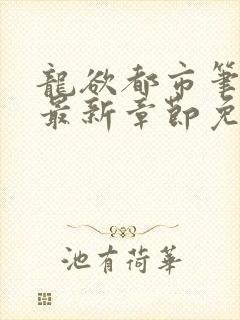 龍欲都市筆
最新章節免
池有荷華